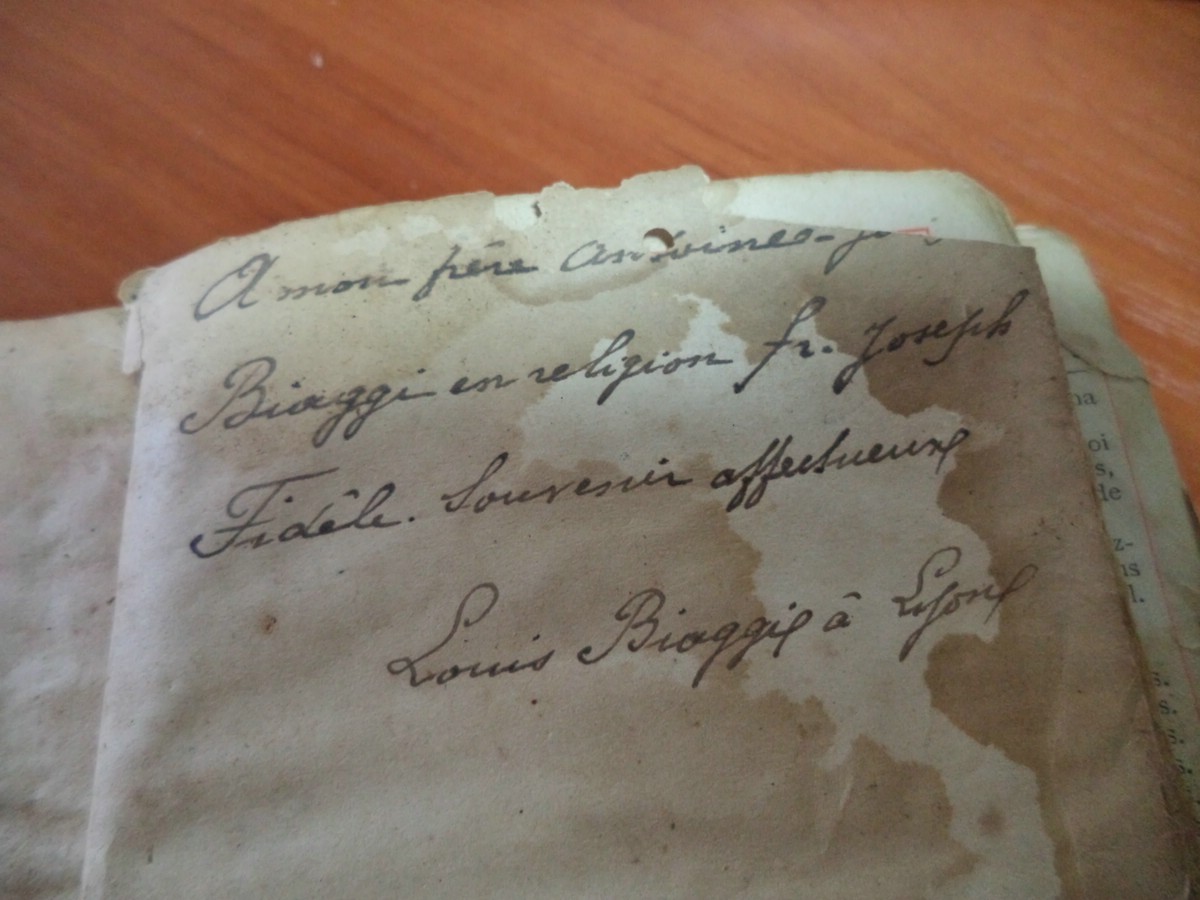 A mon frère Antoine-
Biaggi en religion fr. Joseph
Fidèle. Souvenir affectueux
Louis Biaggi à Lyon
na
oi
s,
de
z-
ns
l.
s.
s.